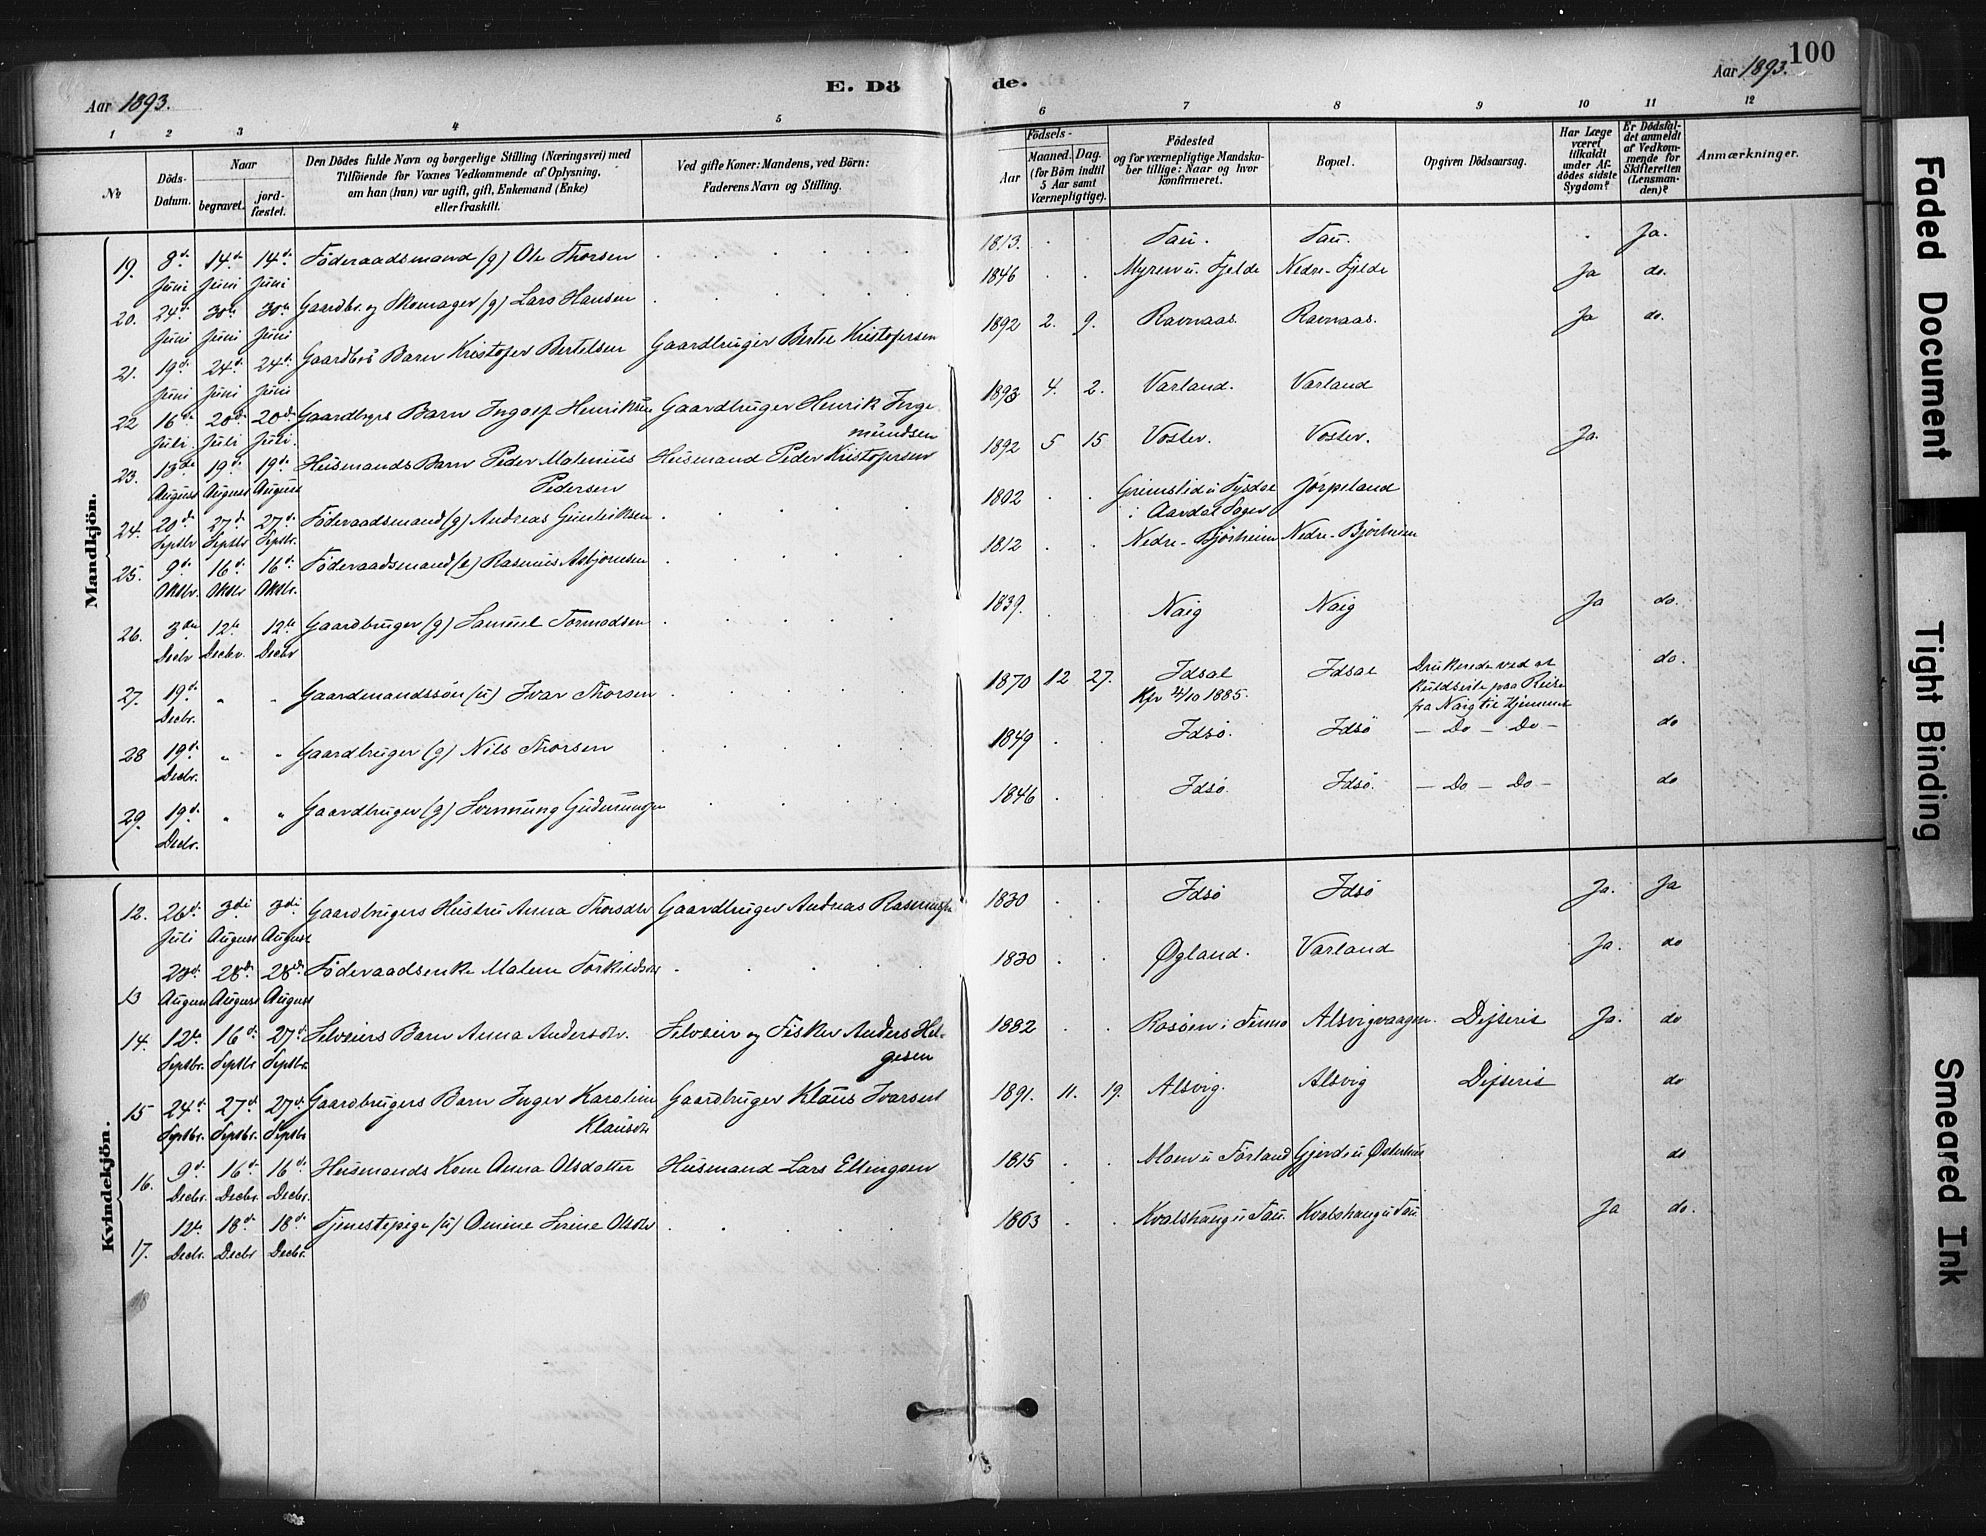 Aar 1893.
E. Dö
de.
Aar 1893.
100
1 2 3 4 5 6 7 8 9 10 11 12
№
Döds-
Datum.
Naar
begravet.
jord-
fæstet.
Den Dödes fulde Navn og borgerlige Stilling (Næringsvei) med
Tilföiende for Voxnes Vedkommende af Oplysning,
om han (hun) var ugift, gift, Enkemand (Enke)
eller fraskilt.
Ved gifte Koner: Mandens, ved Börn:
Faderens Navn og Stilling.
Födsels-
Aar
Maaned. Dag.
(for Börn indtil
5 Aar samt
Værnepligtige).
Födested
og for værnepligtige Mandska-
ber tillige: Naar og hvor
konfirmeret.
Bopæl.
Opgiven Dödsaarsag.
Har Læge
været
tilkaldt
under Af-
dödes sidste
Sygdom?
Er Dödsfal-
det anmeldt
af Vedkom-
mende for
Skifteretten
(Lensman-
den)?
Anmærkninger.
Mandkjön.
19. 8de Juni 14de Juni 14de Juni Föderaadsmand (g) Ole Thorsen 1813. Tau. Tau. Ja.
20. 24de Juni 30te Juni 30te Juni Gaardbr. og Skomager (g) Lars Hansen 1846 Myren u. Fjelde Nedre-Fjelde Ja do.
21. 19de Juni 24de Juni 24de Juni Gaardbrs Barn Kristofer Bertelsen Gaardbruger Bertel Kristofersen 1892 2. 9. Ravnaas. Ravnaas. Ja do.
22 16de Juli 20de Juli 20de Juli. Gaardbrgs Barn Ingolf Henriksen Gaardbruger Henrik Inge
mundsen 1893 4. 2. Varland. Varland
23. 13de August 19de August 19de August Husmands Barn Peder Malenius
Pedersen Husmand Peder Kristofersen 1892 5 15 Voster. Voster. Ja.
24. 20de Septbr 27de Septbr 27de Septbr. Föderaadsmand (g) Andreas Gunleiksen 1802 Grimslid u Tysdal
i Aardal Sogn Jørpeland
25. 9de Oktbr. 16de Oktbr 16de Oktbr. Föderaadsmand (e) Rasmus Asbjørnsen 1812 Nedre-Bjørheim Nedre-Bjørheim
26. 3die Decbr 12te Decbr. 12te Decbr Gaardbruger (g) Samuel Tormodsen 1839. Naig Naig Ja do.
27. 19de Decbr. " " Gaardmandssøn (u) Ivar Thorsen 1870 12 27. Idsal
Kfr 4/10 1885. Idsal Druknede ved at
kuldseile paa Reise
fra Naig til Hjemmet do.
28 19de Decbr. " " Gaardbruger (g) Nils Thorsen 1849 Idsö. Idsö - Do - Do - do
29. 19de Decbr. " " Gaardbruger (g) Svennung Gudmundsen 1846 Idsö. Idsö. - Do - Do - do
Kvindekjön.
12. 26de Juli 3die August 3die August Gaardbrugers Hustru Anna Thorsdtr Gaardbruger Andreas Rasmussen 1830 Idsö Idsö Ja. Ja
13 23de August 28de August 28de August Föderaadsenke Malene Torkildsdtr 1830 Øgland. Varland Ja. do
14. 12te Septbr. 16de Septbr 27de Septbr. Selveiers Barn Anna Andersdtr. Selveier og Fisker Anders Hel-
gesen 1882 Rosöen i Finnö Alsvigvaagen. Difteris Ja. do
15 24de Septbr. 27de Septbr. 27de Septbr Gaardbrugers Barn Inger Karoline
Klausdtr Gaardbruger Klaus Ivarsen 1891. 11. 19. Alsvig. Alsvig Difteris do
16. 9de Decbr. 16de Decbr. 16de Decbr. Husmands Kone Anna Olsdatter Husmand Lars Ellingsen 1815 Moen uFörland Gjerde u Østerhus do
17. 12te Decbr. 18de Decbr 18de Decbr. Tjenestepige (u) Omine Serine Olsdtr 1863 Kvalshaug u Tau. Kvalshaug u Tau Ja do.
18
Faded Document
Tight Binding
Smeared Ink